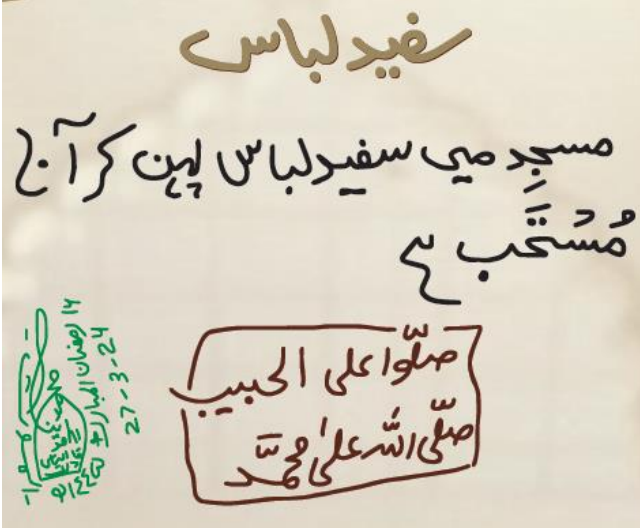 سفید لباس
مسجِد میں سفید لباس پہن کر آنا
مُسْتَحَب ہے
صلّوا علی الحبیب
صلّی اللّٰہ علیٰ محمّد
١٦ رمضان المبارک
27-3-24